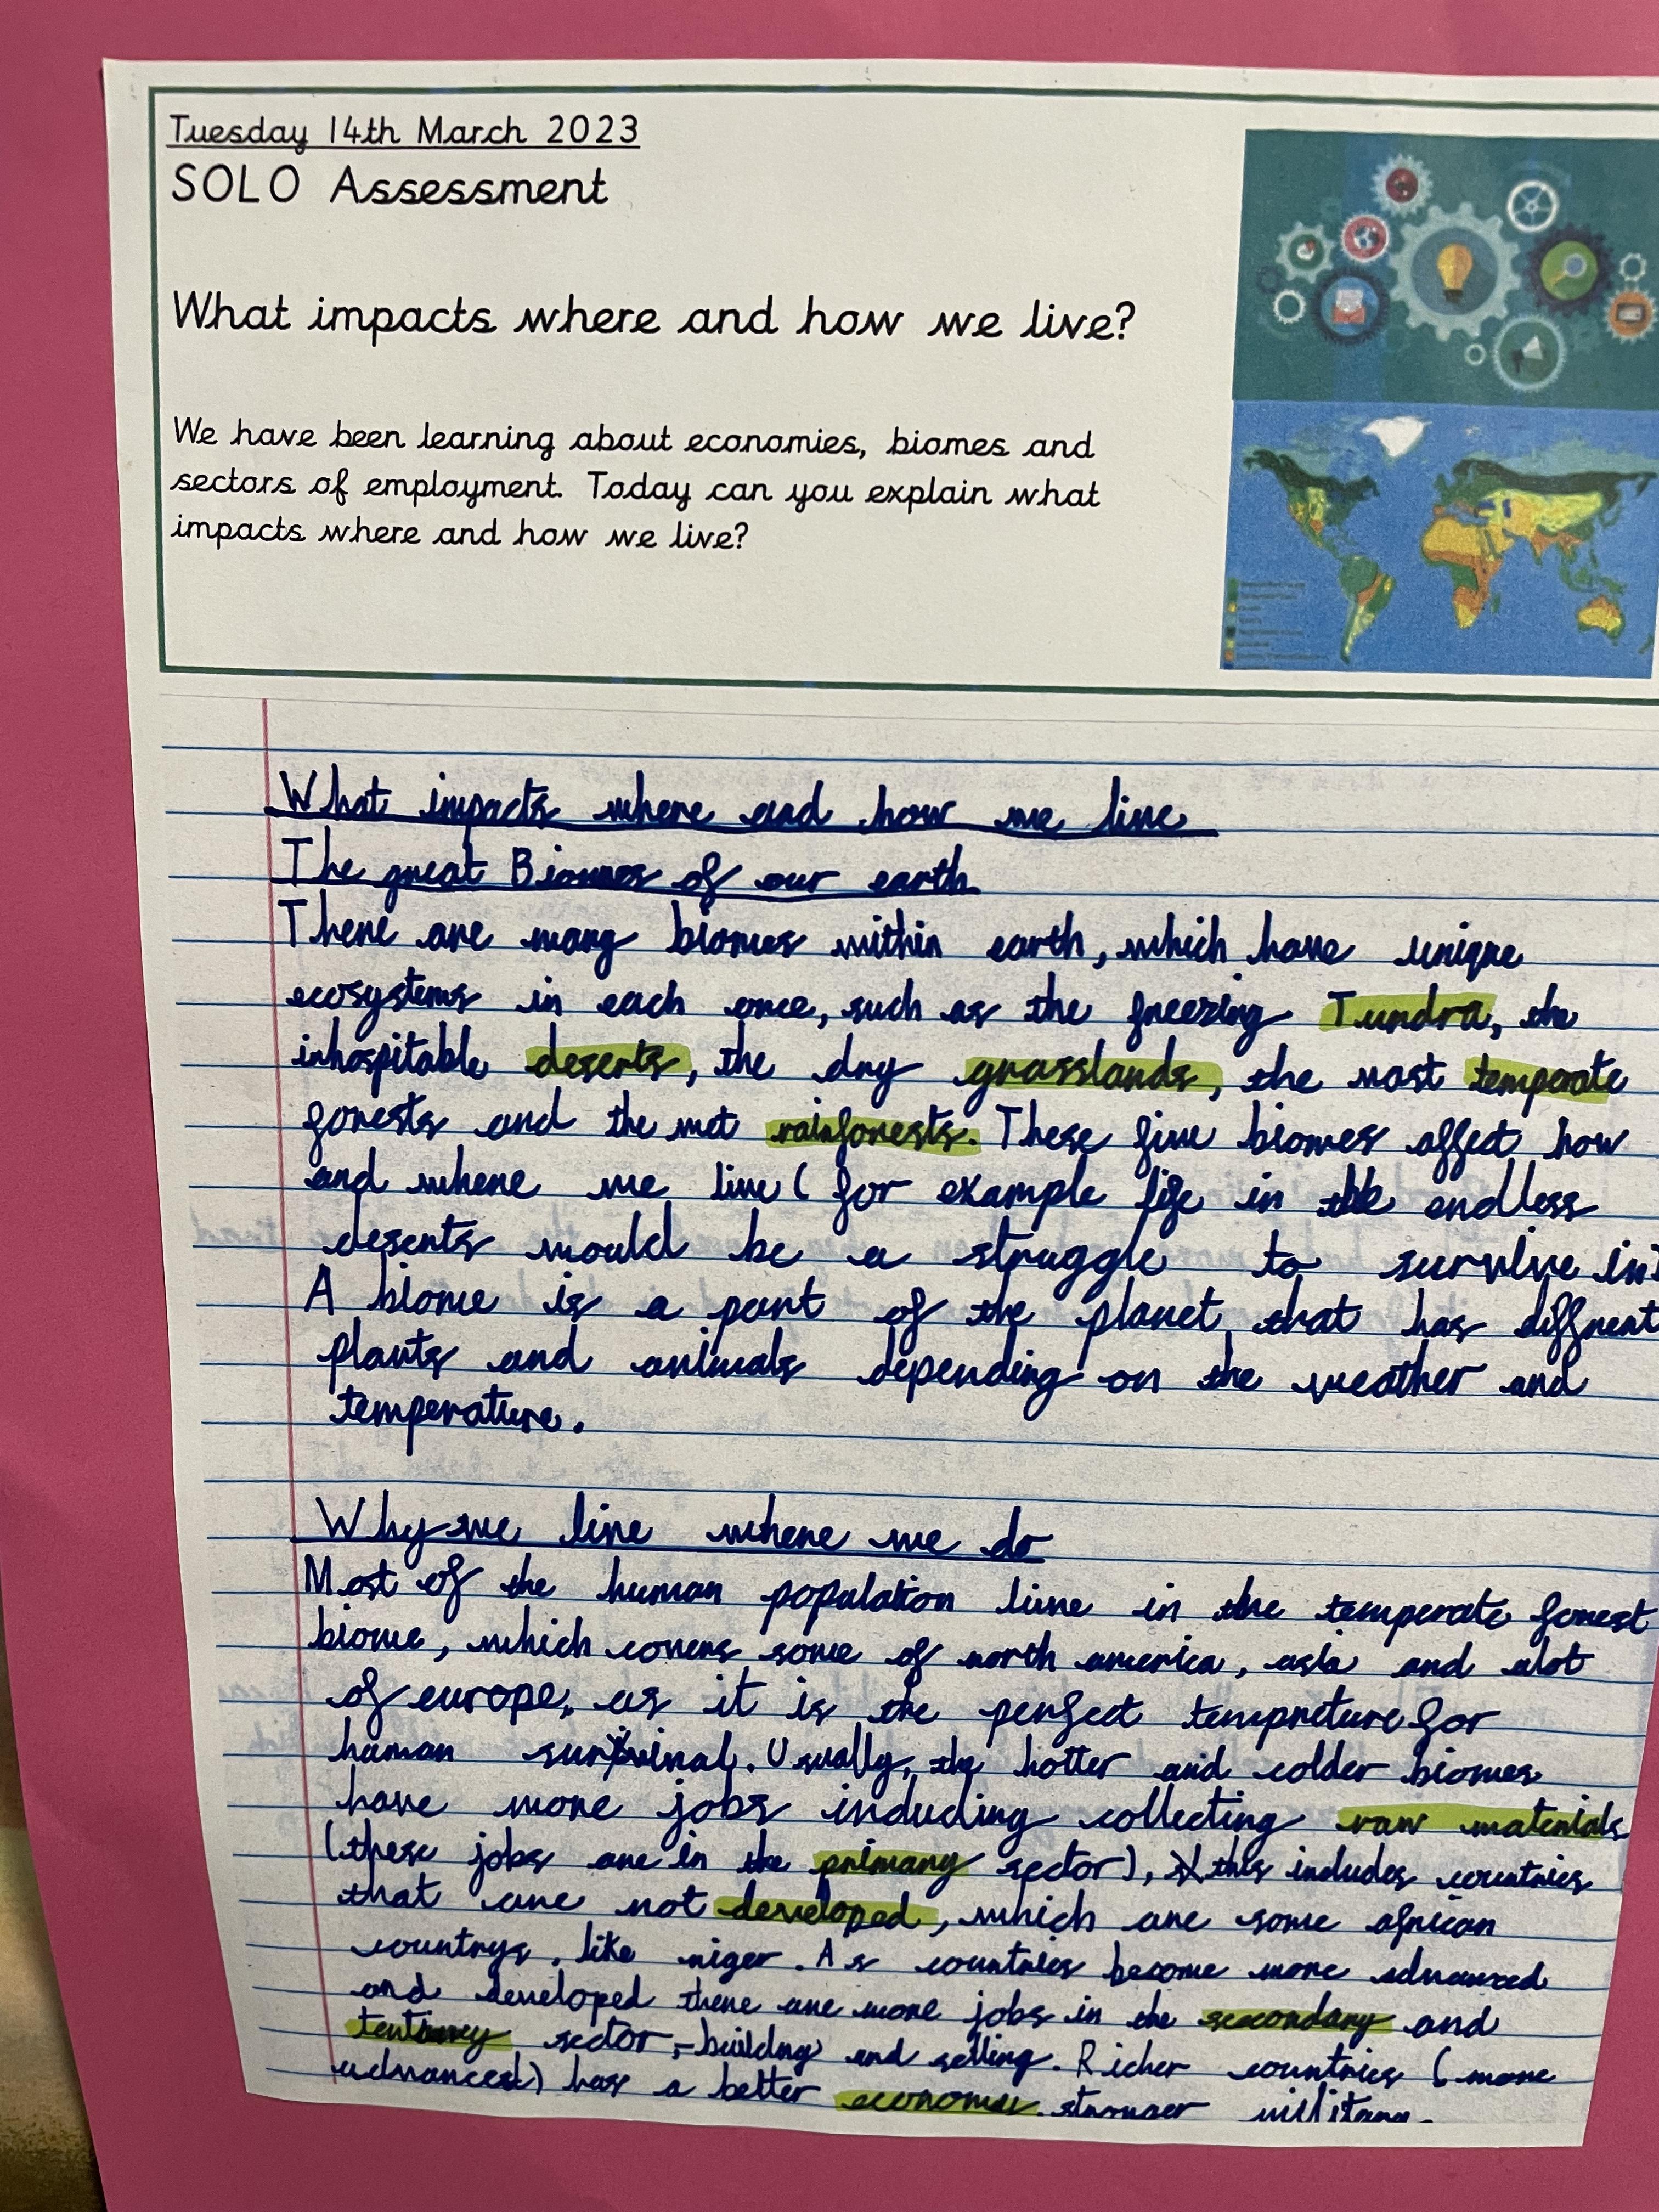 Tuesday 14th March 2023
SOLO Assessment
What impacts where and how we live?
We have been learning about economies, biomes and
sectors of employment. Today can you explain what
impacts where and how we live?
What impacts where and how we live
The great Biomes of our earth
There are many biomes within earth, which have unique
ecosystems in each once, such as the freezing Tundra, the
inhospitable deserts, the dry grasslands, the vast temperate
forests and the wet rainforests. These five biomes affect how
and where we live ( for example life in the endless
deserts would be a struggle to survive in)
A biome is a part of the planet that has diffrent
plants and animals depending on the weather and
temperature.
Why we live where we do
Most of the human population live in the temperate forest
biome, which covers some of north america, asia and alot
of europe, as it is the perfect tempreture for
human survival. Usually, the hotter and colder biomes
have more jobs including collecting raw materials
(these jobs are in the primary sector), this includes countries
that are not developed, which are some african
countrys, like niger. As countries become more advanced
and developed there are more jobs in the secondary and
tertiary sector, - building and selling. Richer countries ( more
advanced) has a better economy, stronger military.